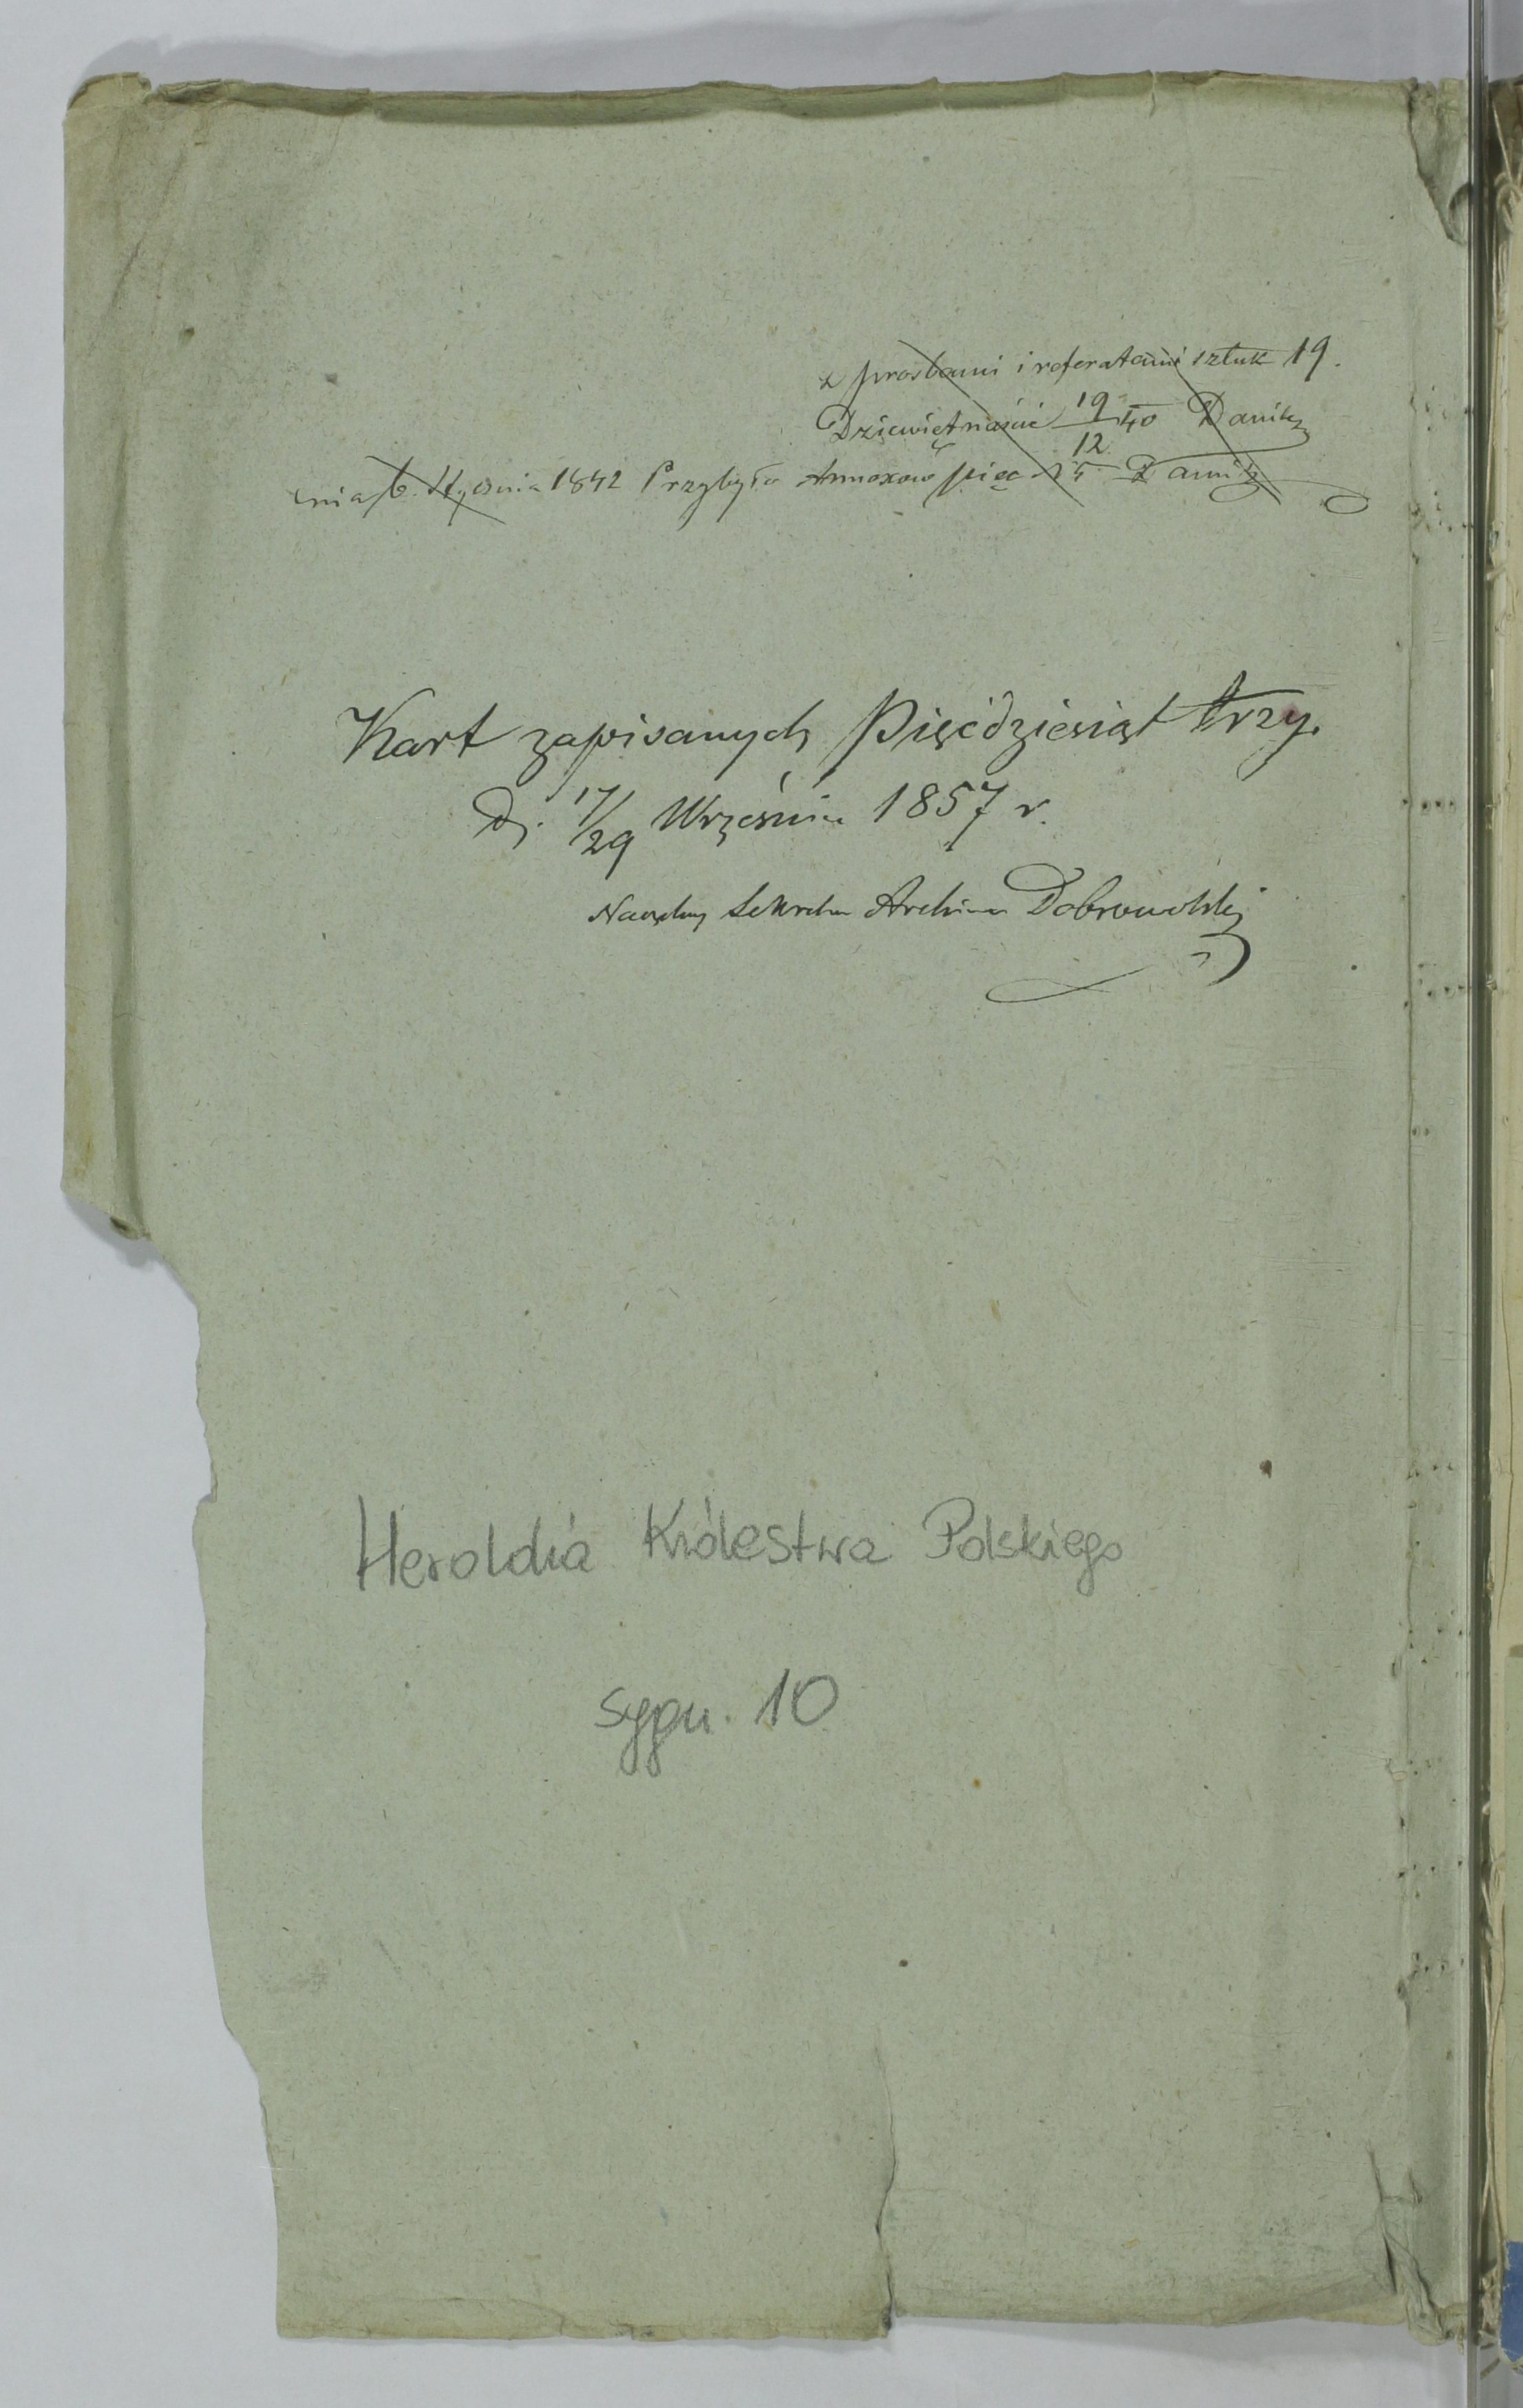 z prośbami i referatami sztuk 19.
Dziewiętnaście 19/12 40
dnia 6. Stycznia 1842 Przybyło Annexow pięć 5.
Kart zapisanych Pięćdziesiąt trzy.
d. 17/29 Września 1857 r.
Naczelny Sekretarz Archiwum Dobrowolski
Heroldia Królestwa Polskiego
sygn. 10